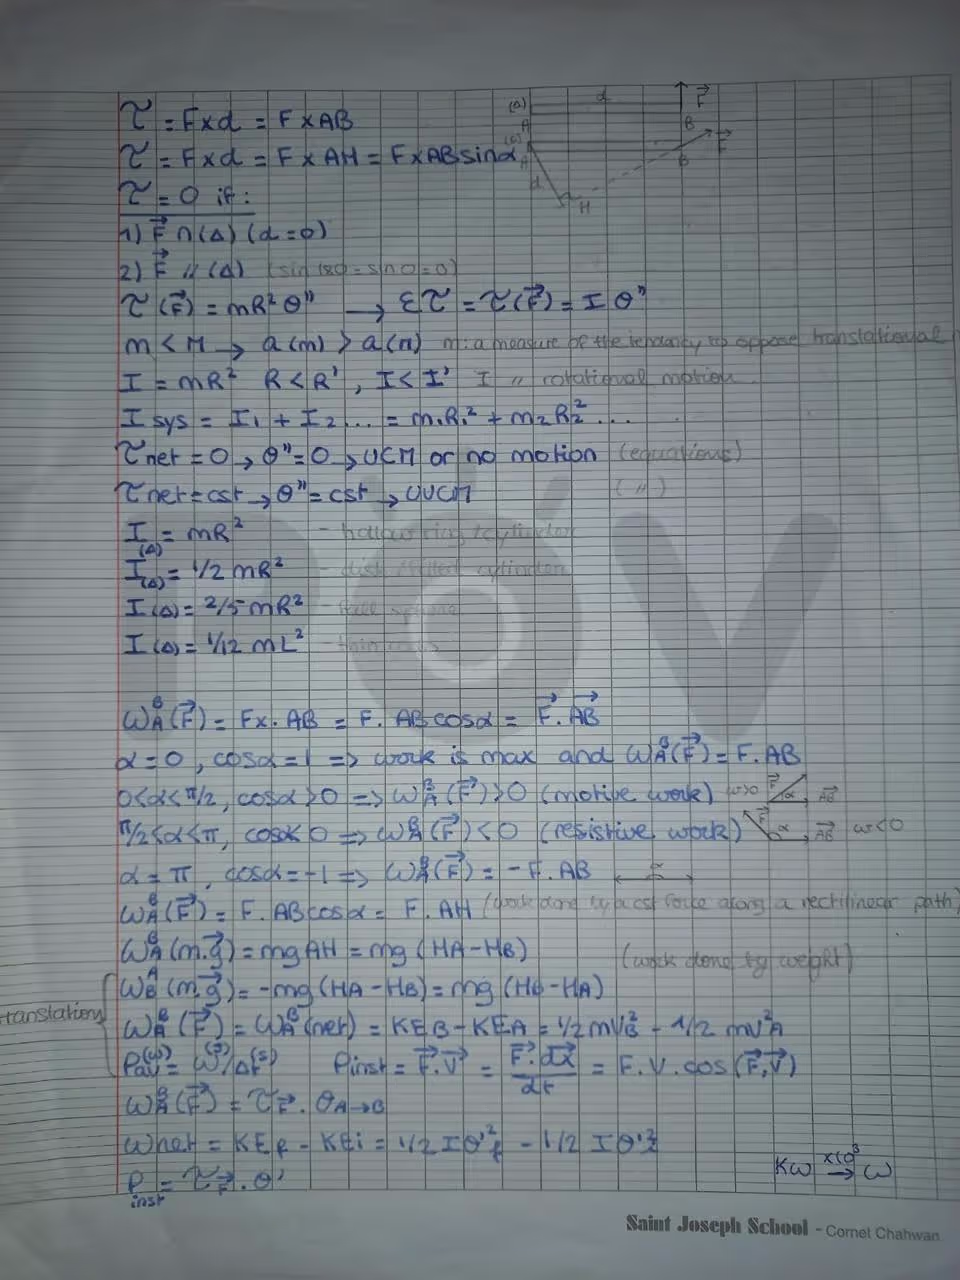 τ = F×d = F×AB
(Δ) d F⃗
A B
τ = F×d = F×AH = F×ABsinα
(Δ) F⃗
A B
d H
τ = 0 if:
1) F⃗ ∩ (Δ) (d=0)
2) F⃗ // (Δ) (sin180=sin0=0)
τ(F⃗) = mR²θ'' → Στ = τ(F⃗) = Iθ''
m<M → a(m) > a(M) m: a measure of the tendency to oppose translational
I = mR² R<R', I<I' I " rotational motion
I sys = I₁ + I₂... = m₁R₁² + m₂R₂²...
τnet = 0 → θ''=0 → UCM or no motion (equations)
τnet=cst → θ''=cst → UVCM (")
I(Δ) = mR² - hollow ring/cylinder
I(Δ) = 1/2 mR² - disk/filled cylinder
I(Δ) = 2/5 mR² - full sphere
I(Δ) = 1/12 mL² - thin
POV
W_A^B(F⃗) = Fx.AB = F.ABcosα = F⃗.AB⃗
α=0, cosα=1 => work is max and W_A^B(F⃗) = F.AB
0<α<π/2, cosα>0 => W_A^B(F⃗)>0 (motive work) w>0 F⃗ α AB⃗
π/2<α<π, cosα<0 => W_A^B(F⃗)<0 (resistive work) F⃗ α AB⃗ w<0
α=π, cosα=-1 => W_A^B(F⃗) = -F.AB
W_A^B(F⃗) = F.ABcosα = F.AH (work done by a cst force along a rectilinear path)
W_A^B(m.g⃗) = mgAH = mg(HA-HB) (work done by weight)
W_B^A(m.g⃗) = -mg(HA-HB) = mg(HB-HA)
translation
W_A^B(F⃗) = W_A^B(net) = KEB-KEA = 1/2mV²B - 1/2 mV²A
Pav(w) = W(J)/Δt(s) Pinst = F⃗.V⃗ = F⃗.dx⃗/dt = F.V.cos(F⃗,V⃗)
W_A^B(F⃗) = τF⃗.θA→B
Wnet = KEf - KEi = 1/2 Iθ'²f - 1/2 Iθ'²i
Kw ×10³→ w
Pinst = τF⃗.θ'
Saint Joseph School - Cornet Chahwan